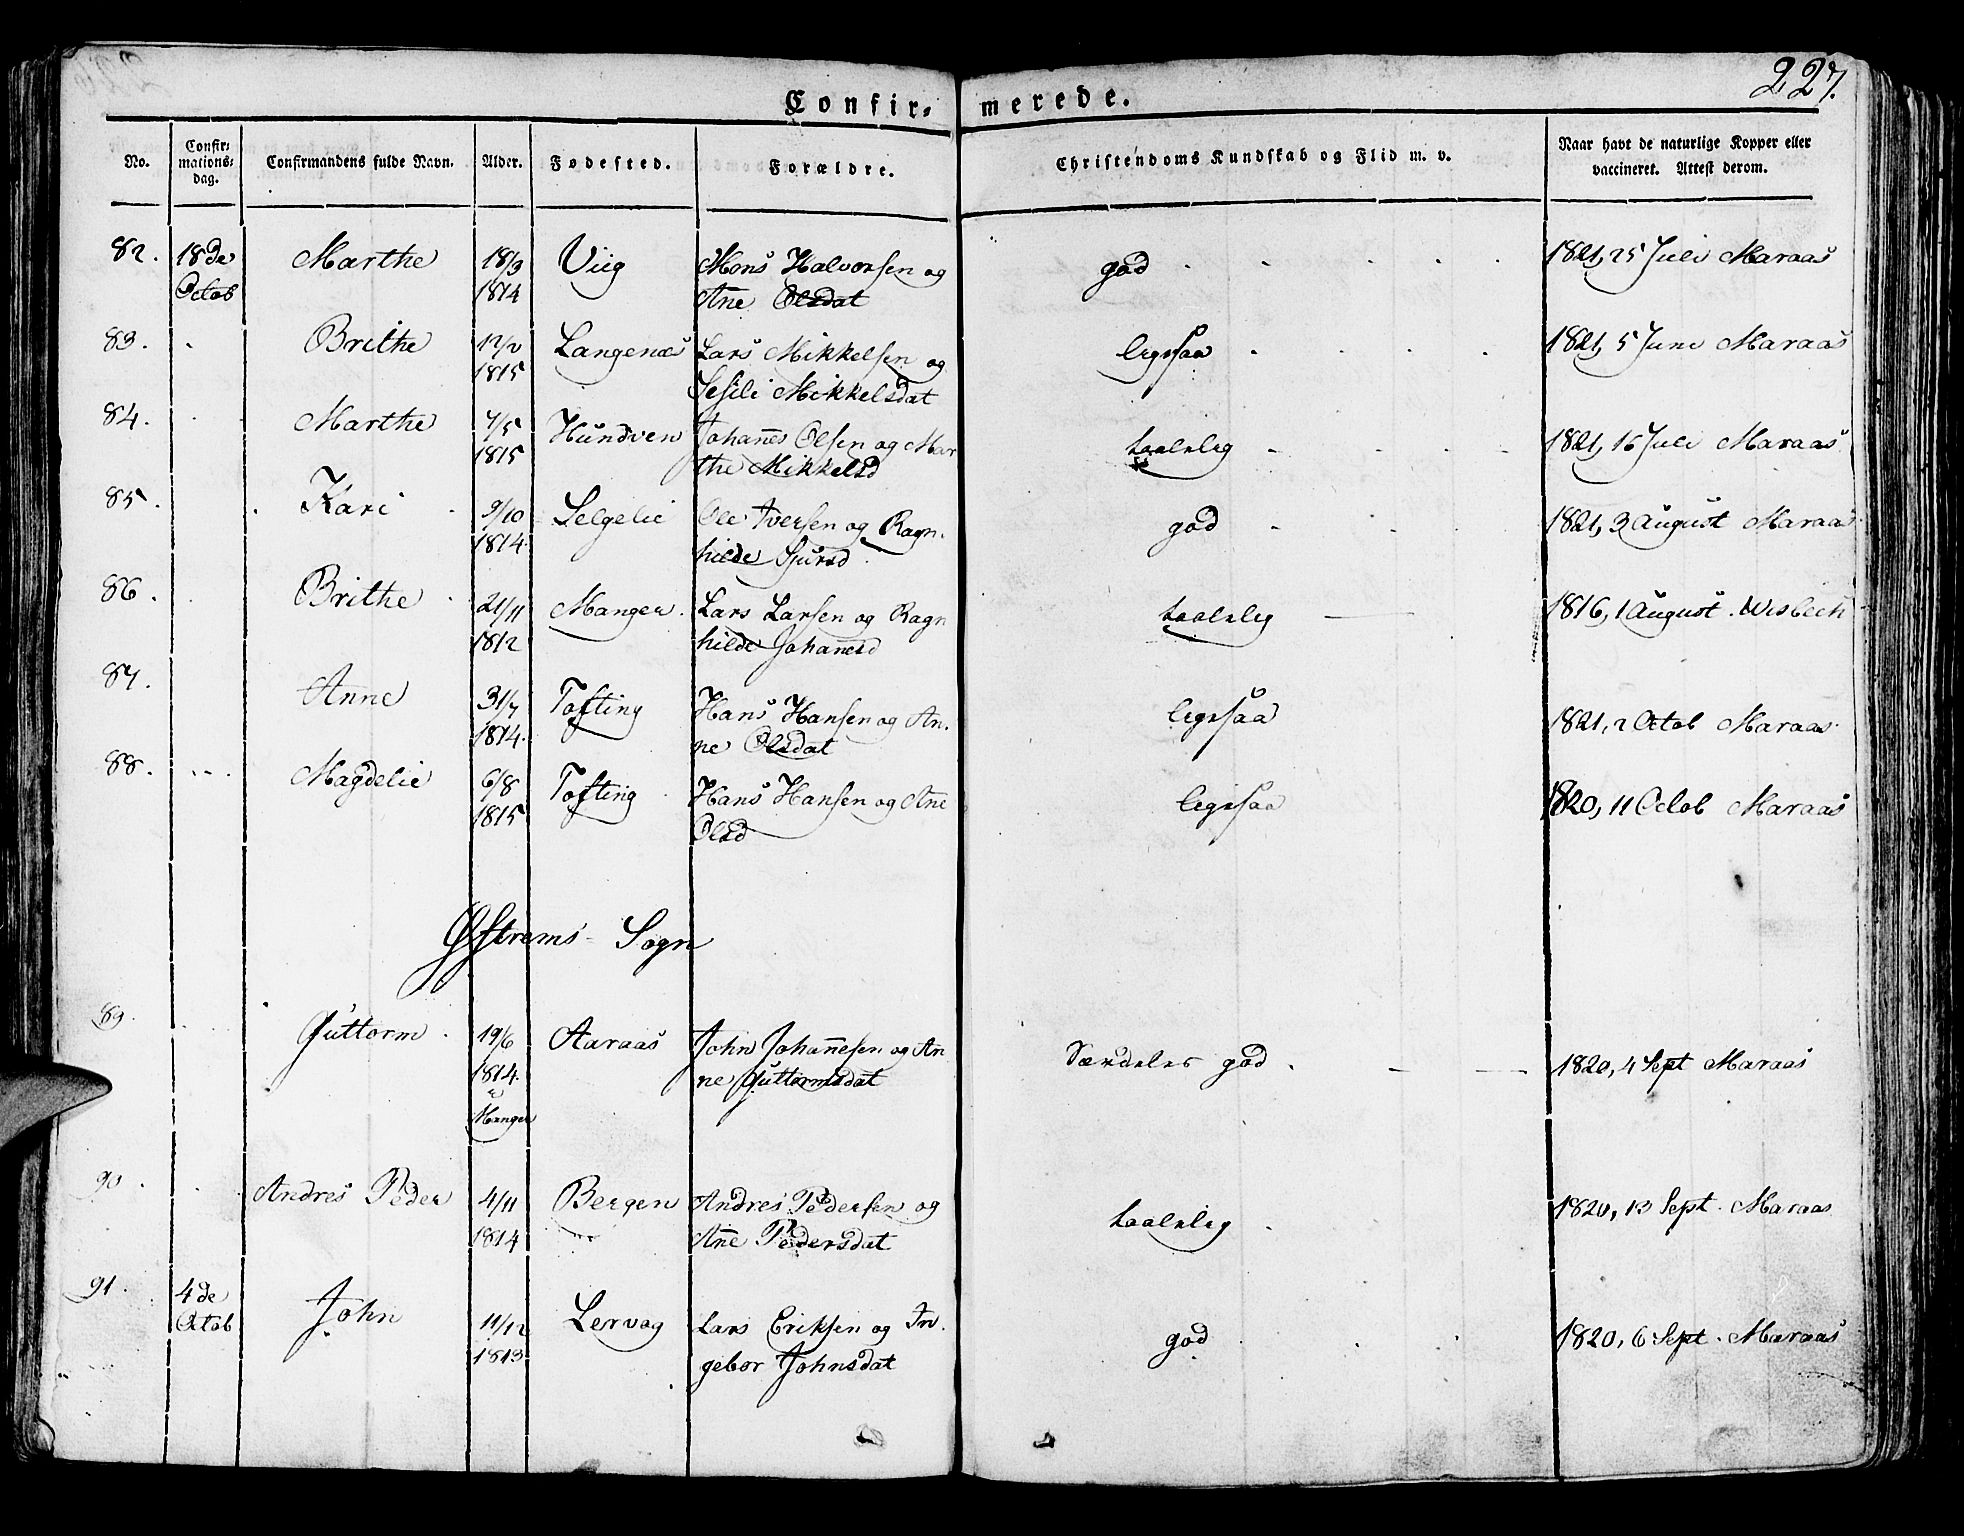 227.
Confir- merede.
No. Confirmationsdag. Confirmandens fulde Navn. Alder. Fødested. Forældre. Christendoms Kundskab og Flid m. v. Naar havt de naturlige Kopper eller vaccineret. Attest derom.
82. 18de Octob Marthe 18/3 1814 Viig Mons Halvorsen og Ane Olsdat god 1821, 25 Juli Maraas
83. Brithe 12/2 1815 Langenæs Lars Mikkelsen og Sesili Mikkelsdat legesaa 1821, 5 Juni Maraas
84. Marthe 7/5 1815 Hundven Johanes Olsen og Mar the Mikkelsd taalelig 1821, 16 Juli Maraas
85. Kari 9/10 1814. Selgelie Ole Iversen og Ragn. hilde Sjursd god 1821, 3 August Maraas
86. Brithe 21/11 1812 Manger. Lars Larsen og Ragn hilde Johanesd taalelig 1816, 1 August. Wisbech
87. Anne 31/7 1814. Tofting Hans Hansen og An. ne Olsdat legesaa 1821, 2 Octob Maraas
88. Magdelie 6/8 1815 Tofting Hans Hansen og Ane Olsd legesaa 1820, 11 Octob Maraas
Østrems- Sogn
89. Guttorm 19/6 1814. Manger Aaraas John Johanesen og An ne Guttormsdat Særdeles god 1820, 4 Sept Maraas
90. Andres Peder 4/11 1814 Bergen Andres Pedersen og Ane Pedersdat taalelig 1820, 13 Sept. Maraas
91. 4de Octob John 11/12 1813. Lervog Lars Eriksen og In. gebor Johnsdat god 1820, 6 Sept. Maraas